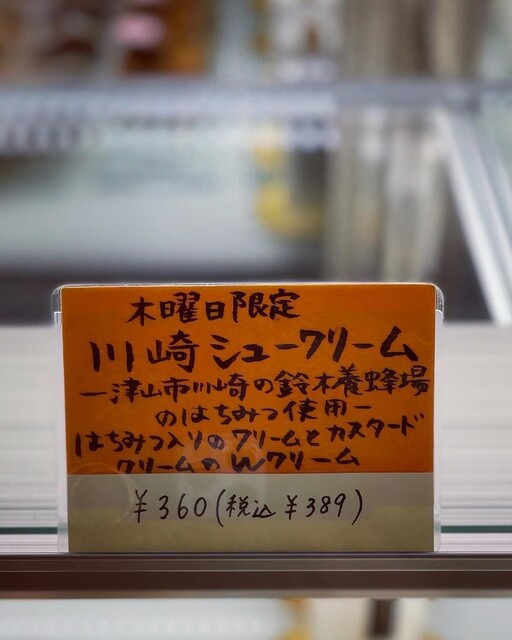 木曜日限定
川崎シュークリーム
ー津山市川崎の鈴木養蜂場
のはちみつ使用ー
はちみつ入りのクリームとカスタード
クリームのWクリーム
¥360(税込¥389)